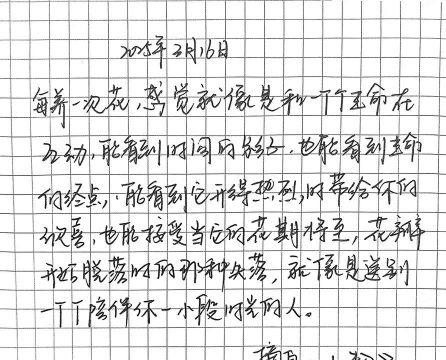 2025年3月16日
每养一次花，感觉就像是和一个个生命在
互动，能看到时间的影子，也能看到生命
的终点，能看到它开得热烈，时带给你的
欢喜，也能接受当它的花期将至，花瓣
开始脱落时的那种失落，就像是送别
一个个陪伴你一小段时光的人。
摘自